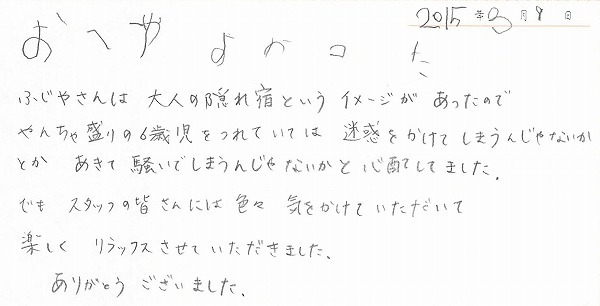 2015年9月9日
おへや よかった
ふじやさんは 大人の隠れ宿という イメージが あったので
やんちゃ盛りの6歳児をつれていては 迷惑をかけてしまうんじゃないか
とか あきて騒いでしまうんじゃないかと心配してました。
でも スタッフの皆さんには色々 気をかけていただいて
楽しく リラックスさせていただきました。
ありがとう ございました。